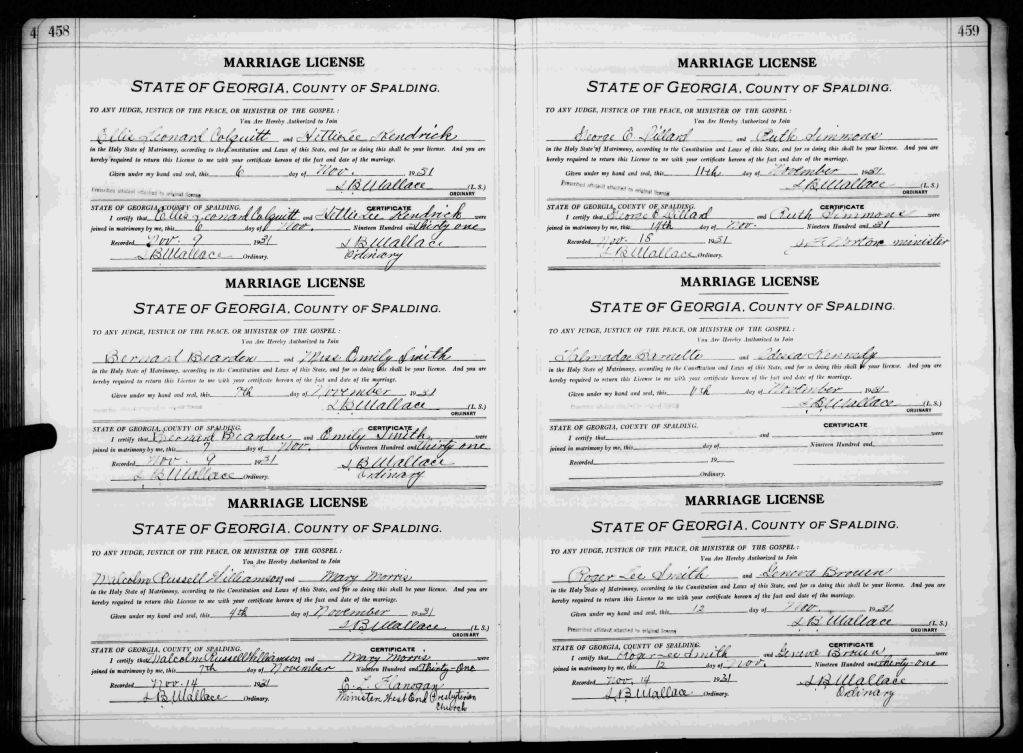 4 458
MARRIAGE LICENSE
STATE OF GEORGIA, COUNTY OF SPALDING.
TO ANY JUDGE, JUSTICE OF THE PEACE, OR MINISTER OF THE GOSPEL:
You Are Hereby Authorized to Join
Ellis Leonard Colquitt and Nettie Lee Kendrick
in the Holy State of Matrimony, according to the Constitution and Laws of this State, and for so doing this shall be your license. And you are
hereby required to return this License to me with your certificate hereon of the fact and date of the marriage.
Given under my hand and seal, this 6 day of Nov. 1931
L B Wallace (L. S.)
ORDINARY
Prescribed affidavit attached to original license
CERTIFICATE
STATE OF GEORGIA, COUNTY OF SPALDING.
I certify that Ellis Leonard Colquitt and Nettie Lee Kendrick were
joined in matrimony by me, this 6 day of Nov. Nineteen Hundred and Thirty one
Recorded Nov. 9 1931 L B Wallace
L B Wallace Ordinary. Ordinary
MARRIAGE LICENSE
STATE OF GEORGIA, COUNTY OF SPALDING.
TO ANY JUDGE, JUSTICE OF THE PEACE, OR MINISTER OF THE GOSPEL:
You Are Hereby Authorized to Join
Bernard Bearden and Miss Emily Smith
in the Holy State of Matrimony, according to the Constitution and Laws of this State, and for so doing this shall be your license. And you are
hereby required to return this License to me with your certificate hereon of the fact and date of the marriage.
Given under my hand and seal, this 7th day of November 1931
L B Wallace (L. S.)
ORDINARY
CERTIFICATE
STATE OF GEORGIA, COUNTY OF SPALDING.
I certify that Bernard Bearden and Emily Smith were
joined in matrimony by me, this 7 day of Nov. Nineteen Hundred and Thirty one
Recorded Nov. 9 1931 L B Wallace
L B Wallace Ordinary. Ordinary
MARRIAGE LICENSE
STATE OF GEORGIA, COUNTY OF SPALDING.
TO ANY JUDGE, JUSTICE OF THE PEACE, OR MINISTER OF THE GOSPEL:
You Are Hereby Authorized to Join
Malcolm Russell Williamson and Mary Morris
in the Holy State of Matrimony, according to the Constitution and Laws of this State, and for so doing this shall be your license. And you are
hereby required to return this License to me with your certificate hereon of the fact and date of the marriage.
Given under my hand and seal, this 4th day of November 1931
L B Wallace (L. S.)
ORDINARY
CERTIFICATE
STATE OF GEORGIA, COUNTY OF SPALDING.
I certify that Malcolm Russell Williamson and Mary Morris were
joined in matrimony by me, this 7th day of November Nineteen Hundred and Thirty-One
Recorded Nov. 14 1931 E. L. Flanagan
L B Wallace Ordinary. Minister West End Presbyterian
Church
459
MARRIAGE LICENSE
STATE OF GEORGIA, COUNTY OF SPALDING.
TO ANY JUDGE, JUSTICE OF THE PEACE, OR MINISTER OF THE GOSPEL:
You Are Hereby Authorized to Join
George E. Dillard and Ruth Simmons
in the Holy State of Matrimony, according to the Constitution and Laws of this State, and for so doing this shall be your license. And you are
hereby required to return this License to me with your certificate hereon of the fact and date of the marriage.
Given under my hand and seal, this 11th day of November 1931
L B Wallace (L. S.)
ORDINARY
Prescribed affidavit attached to original license
CERTIFICATE
STATE OF GEORGIA, COUNTY OF SPALDING.
I certify that George E Dillard and Ruth Simmons were
joined in matrimony by me, this day of Nov. Nineteen Hundred and 31
Recorded Nov. 1931 Norton minister
L B Wallace Ordinary.
MARRIAGE LICENSE
STATE OF GEORGIA, COUNTY OF SPALDING.
TO ANY JUDGE, JUSTICE OF THE PEACE, OR MINISTER OF THE GOSPEL:
You Are Hereby Authorized to Join
Talmadge and Kennedy
in the Holy State of Matrimony, according to the Constitution and Laws of this State, and for so doing this shall be your license. And you are
hereby required to return this License to me with your certificate hereon of the fact and date of the marriage.
Given under my hand and seal, this day of November 1931
L B Wallace (L. S.)
ORDINARY
CERTIFICATE
STATE OF GEORGIA, COUNTY OF SPALDING.
I certify that and
joined in matrimony by me, this day of Nineteen Hundred and
Recorded 19
Ordinary.
MARRIAGE LICENSE
STATE OF GEORGIA, COUNTY OF SPALDING.
TO ANY JUDGE, JUSTICE OF THE PEACE, OR MINISTER OF THE GOSPEL:
You Are Hereby Authorized to Join
Roger Lee Smith and Geneva Brown
in the Holy State of Matrimony, according to the Constitution and Laws of this State, and for so doing this shall be your license. And you are
hereby required to return this License to me with your certificate hereon of the fact and date of the marriage.
Given under my hand and seal, this 12 day of Nov. 1931
L B Wallace (L. S.)
ORDINARY
Prescribed affidavit attached to original license
CERTIFICATE
STATE OF GEORGIA, COUNTY OF SPALDING.
I certify that Roger Lee Smith and Geneva Brown were
joined in matrimony by me, this 12 day of Nov. Nineteen Hundred and thirty-one
Recorded Nov. 14 1931 L B Wallace
L B Wallace Ordinary. Ordinary